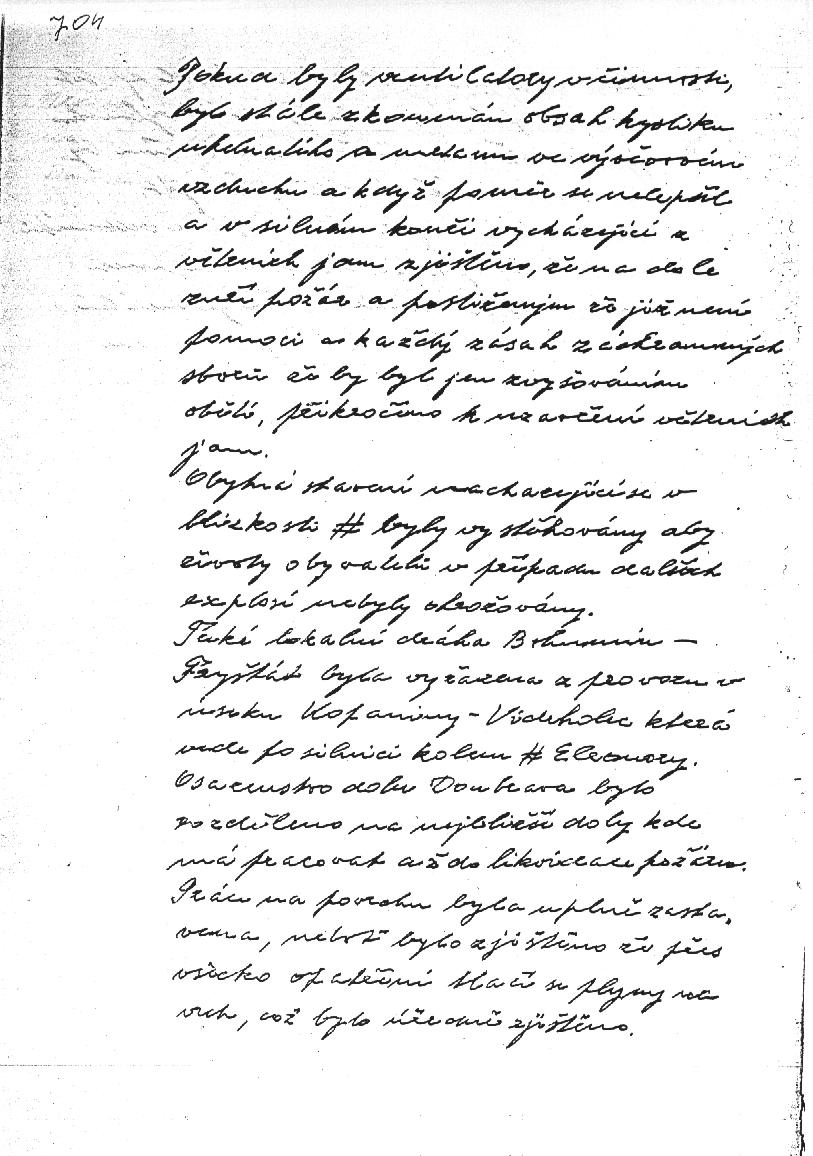 704
Pokud byly ventilátory v činnosti,
bylo stále zkoumán obsah kysliku
uhelnatého a metanu ve výdušném
vzduchu a když poměr se nelepšil
a v silném kouři vycházející z
větrních jam zjištěno, že na dole
zuří požár a postiženým že již není
pomoci a každý zásah záchranných
sborů že by byl jen zvyšováním
obětí, přikročeno k uzavření větrních
jam.
Obytná stavení nacházející se v
blizkosti # byly vystěhovány aby
životy obyvatelů v případu dalších
explosí nebyly ohrožovány.
Také lokalní dráha Bohumín –
Fryštát byla vyřazena z provozu v
úseku Kopaniny – Videholec která
vede po silnici kolem # Eleonory.
Osazenstvo dolu Doubrava bylo
rozděleno na nejbližší doly kde
má pracovat až do likvidace požáru.
Práce na povrchu byla uplně zasta,
vena, neboť bylo zjištěno že přes
všecko opatření tlačí se plyny na
vrch, což bylo úředně zjištěno.